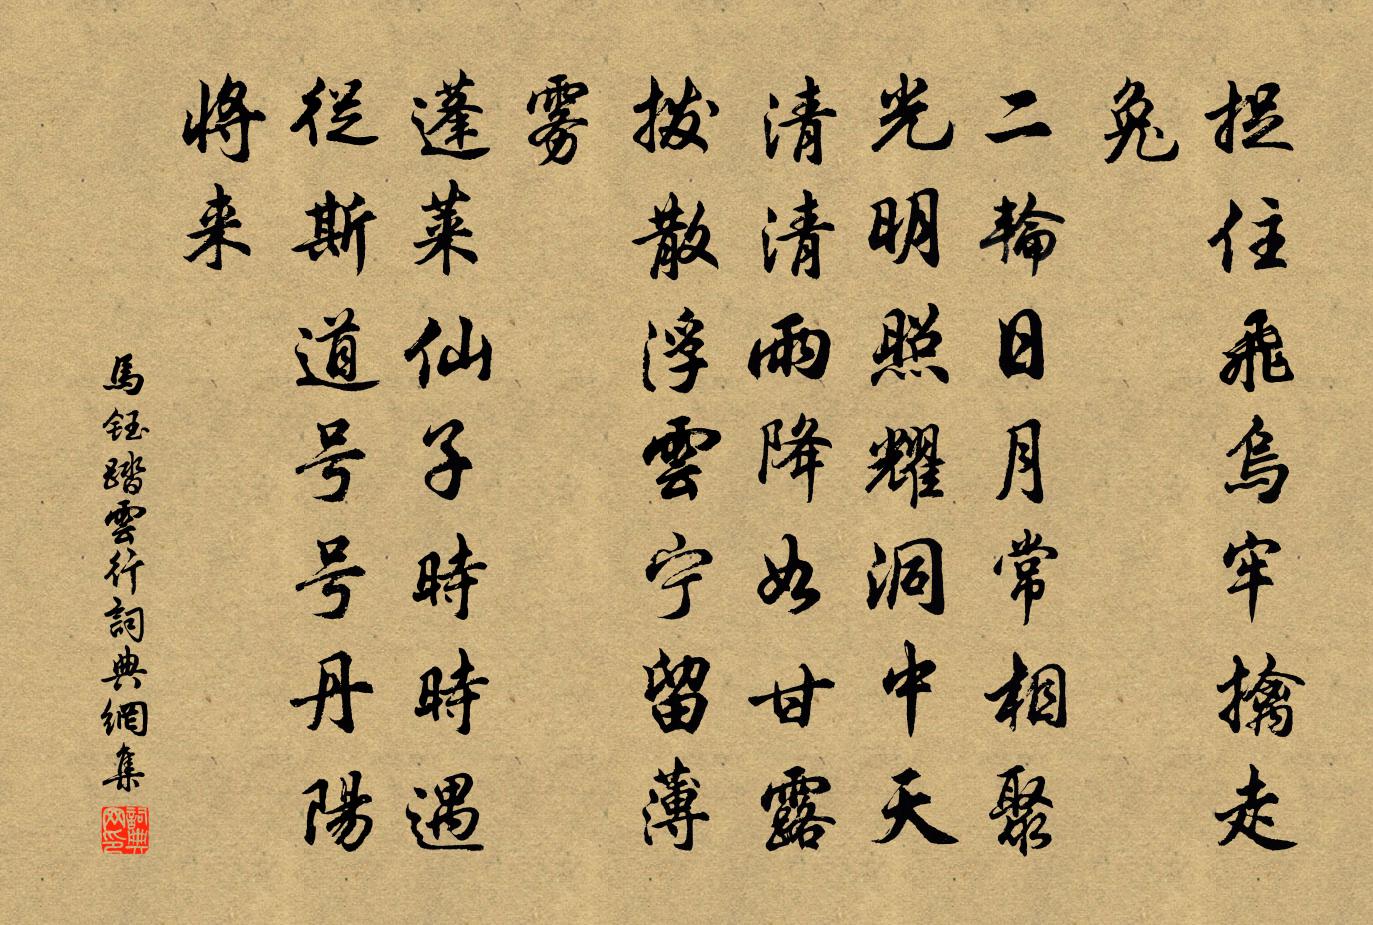 捉住飛烏牢擒走
兔
二輪日月常相聚
光明照耀洞中天
清清雨降如甘露
拨散浮雲宁留薄
雾
蓬莱仙子時時遇
從斯道号号丹陽
將来
馬鈺踏雲行詞典網集
詞典网印